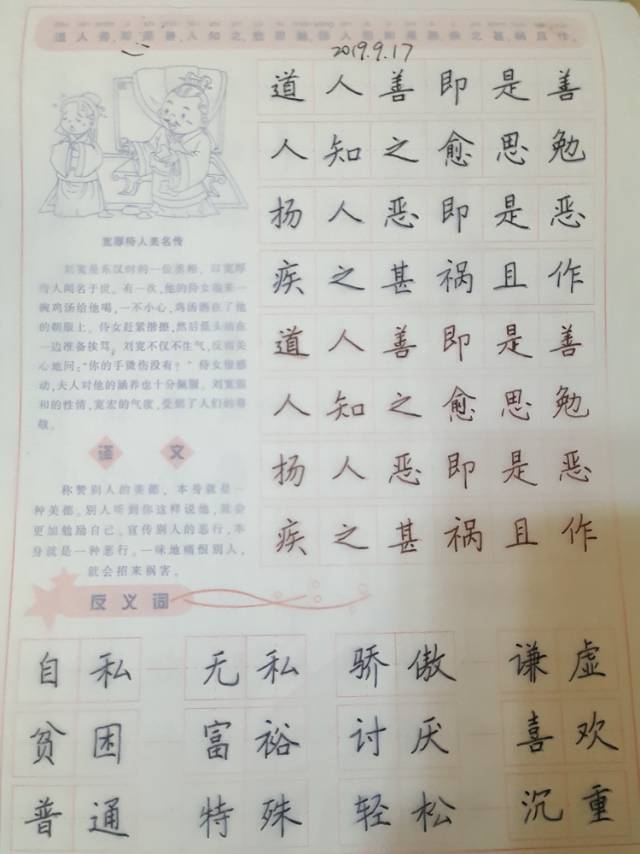 道人善，即是善，人知之，愈思勉，扬人恶，即是恶，疾之甚，祸且作。
2019.9.17
道人善即是善
人知之愈思勉
扬人恶即是恶
疾之甚祸且作
道人善即是善
人知之愈思勉
扬人恶即是恶
疾之甚祸且作
宽厚待人美名传
刘宽是东汉时的一位丞相，以宽厚
待人闻名于世。有一次，他的侍女端来一
碗鸡汤给他喝，一不小心，鸡汤洒在了他
的朝服上。侍女赶紧揩擦，然后低头站在
一边准备挨骂。刘宽不仅不生气，反而关
心地问：“你的手烫伤没有？”侍女很感
动，夫人对他的涵养也十分佩服。刘宽温
和的性情，宽宏的气度，受到了人们的尊
敬。
译文
称赞别人的美德，本身就是一
种美德。别人听到你这样说他，就会
更加勉励自己。宣传别人的恶行，本
身就是一种恶行。一味地痛恨别人，
就会招来祸害。
反义词
自私 — 无私 骄傲 — 谦虚
贫困 — 富裕 讨厌 — 喜欢
普通 — 特殊 轻松 — 沉重